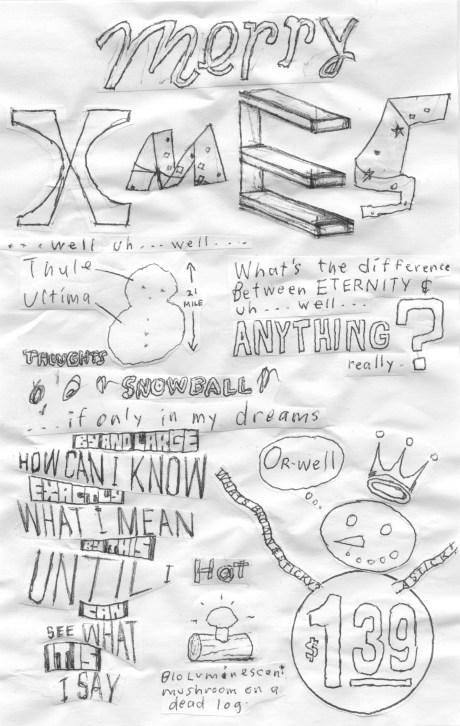 merry
XmES
. . . well uh . . . well . . . .
Thule
Ultima
21
MILE
What's the difference
Between ETERNITY &
uh . . . well . . .
ANYTHING?
really.
THOUGHTS
SNOWBALL
. . . if only in my dreams
BY AND LARGE
HOW CAN I KNOW
EXACTLY
WHAT I MEAN
BY THIS
UNTIL I
CAN
SEE WHAT
IT IS
I SAY
HOT
Bioluminescent
mushroom on a
dead log.
Or-well
STICKY?
A STICK!
$1 39